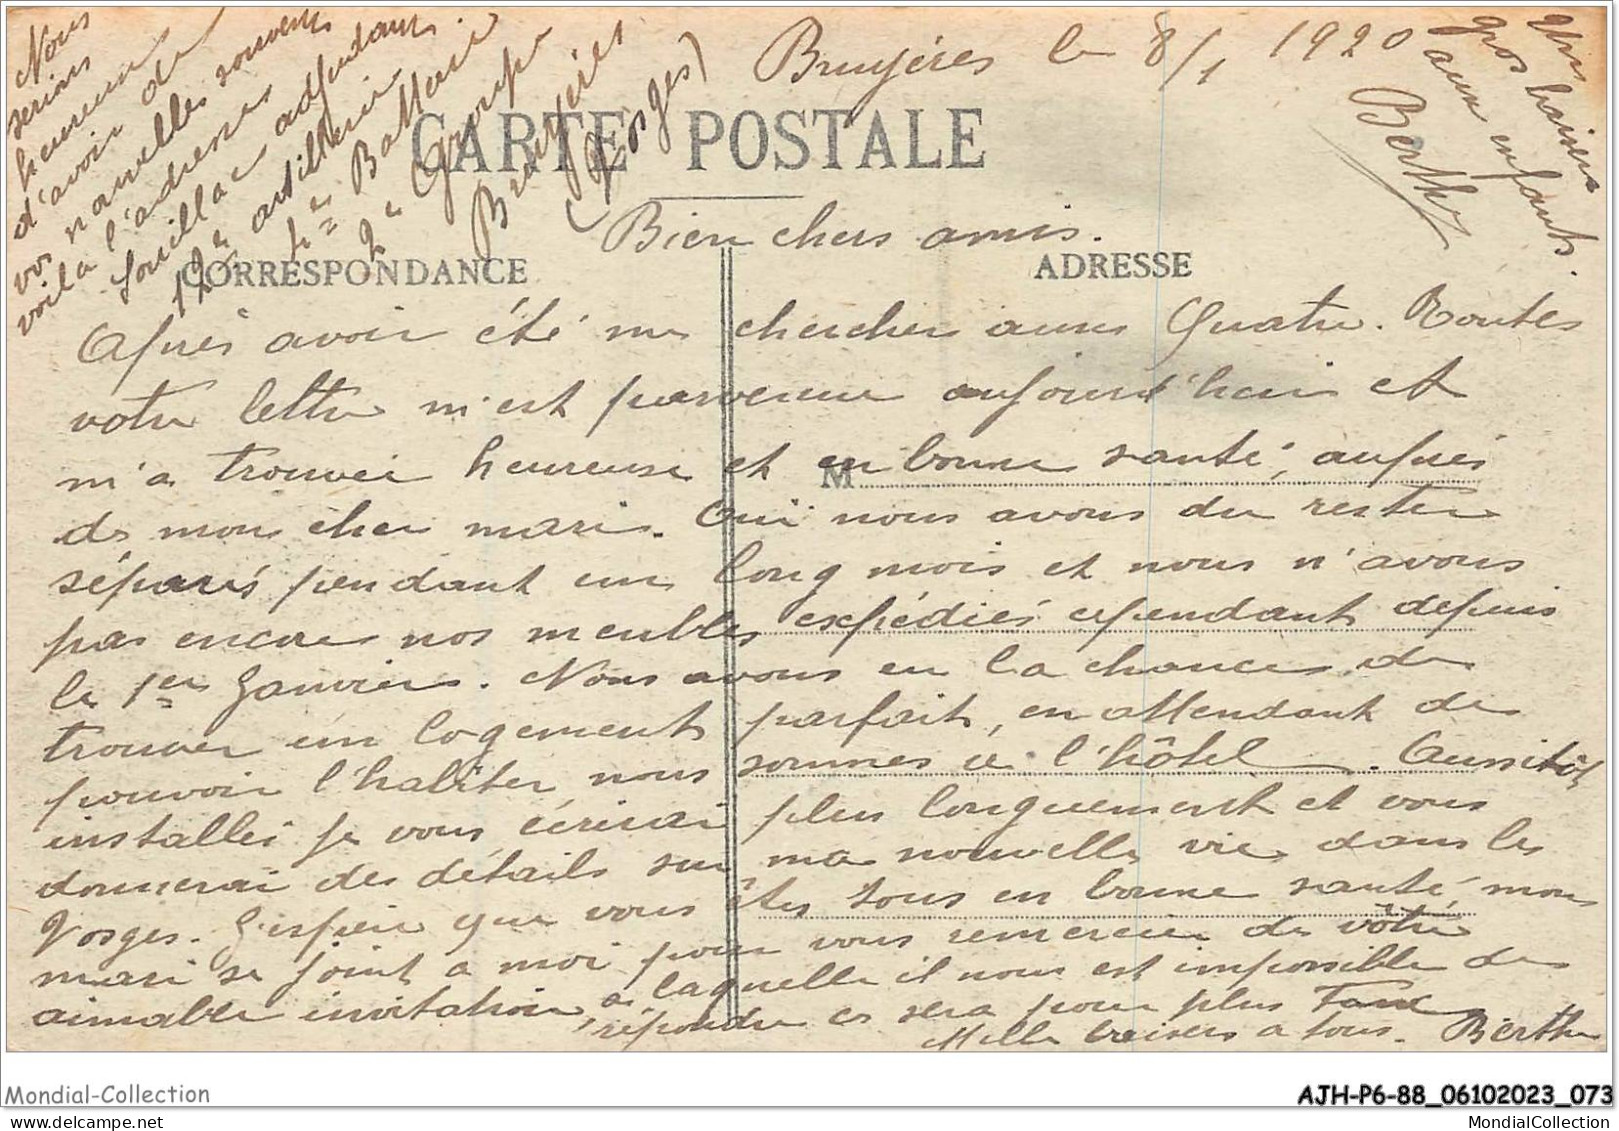 Bruyères le 8/1 1920
CARTE POSTALE
CORRESPONDANCE
ADRESSE
M
Bien chers amis.
Après avoir été me chercher aux Quatre-Routes
votre lettre m'est parvenue aujourd'hui et
m'a trouvée heureuse et en bonne santé, auprès
de mon cher mari. Oui nous avons du rester
séparés pendant un long mois et nous n'avons
pas encore nos meubles expédiés cependant depuis
le 1er Janvier. Nous avons eu la chance de
trouver un logement parfait, en attendant de
pouvoir l'habiter, nous sommes à l'hôtel. Aussitôt
installés je vous écrirai plus longuement et vous
donnerai des détails sur ma nouvelle vie dans les
Vosges. J'espère que vous êtes tous en bonne santé, mon
mari se joint a moi pour vous remercier de vôtre
aimable invitation, a laquelle il nous est impossible de
répondre ce sera pour plus tard
Mille baisers a tous. Berthe
Nous
serions
heureux
d'avoir de
vos nouvelles souvent
voilà l'adresse
Souillac adjudant
12e artillerie
4e Batterie
2e Groupe
Bruyères
(Vosges)
gros baisers
aux enfants.
Berthe
Mondial-Collection
AJH-P6-88_06102023_073
MondialCollection